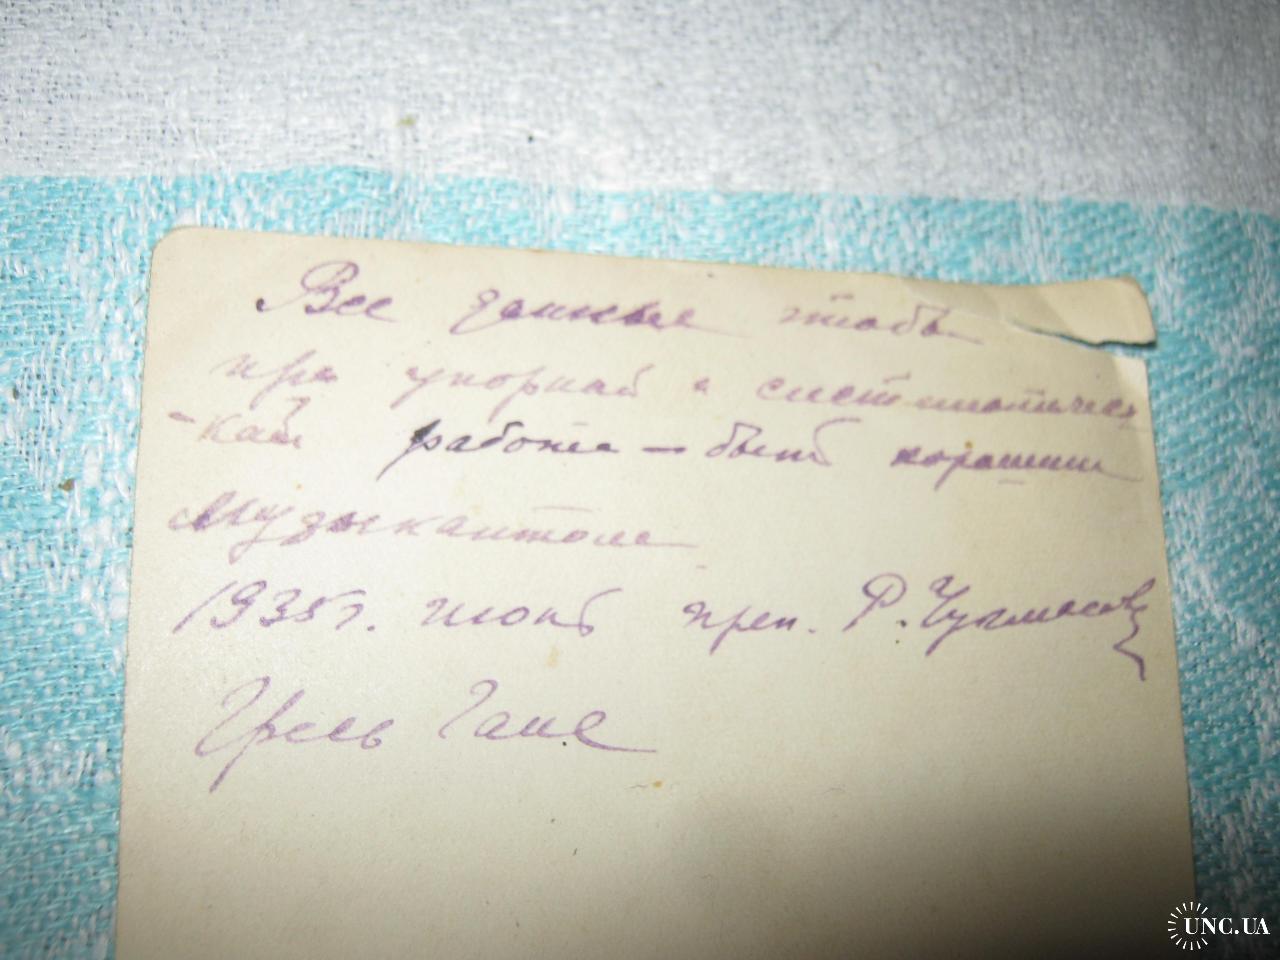 Все данные чтобы
при упорной и систематичес
-кой работе – быть хорошим
музыкантом
1935г. июнь преп. Р.
Гале
UNC.UA